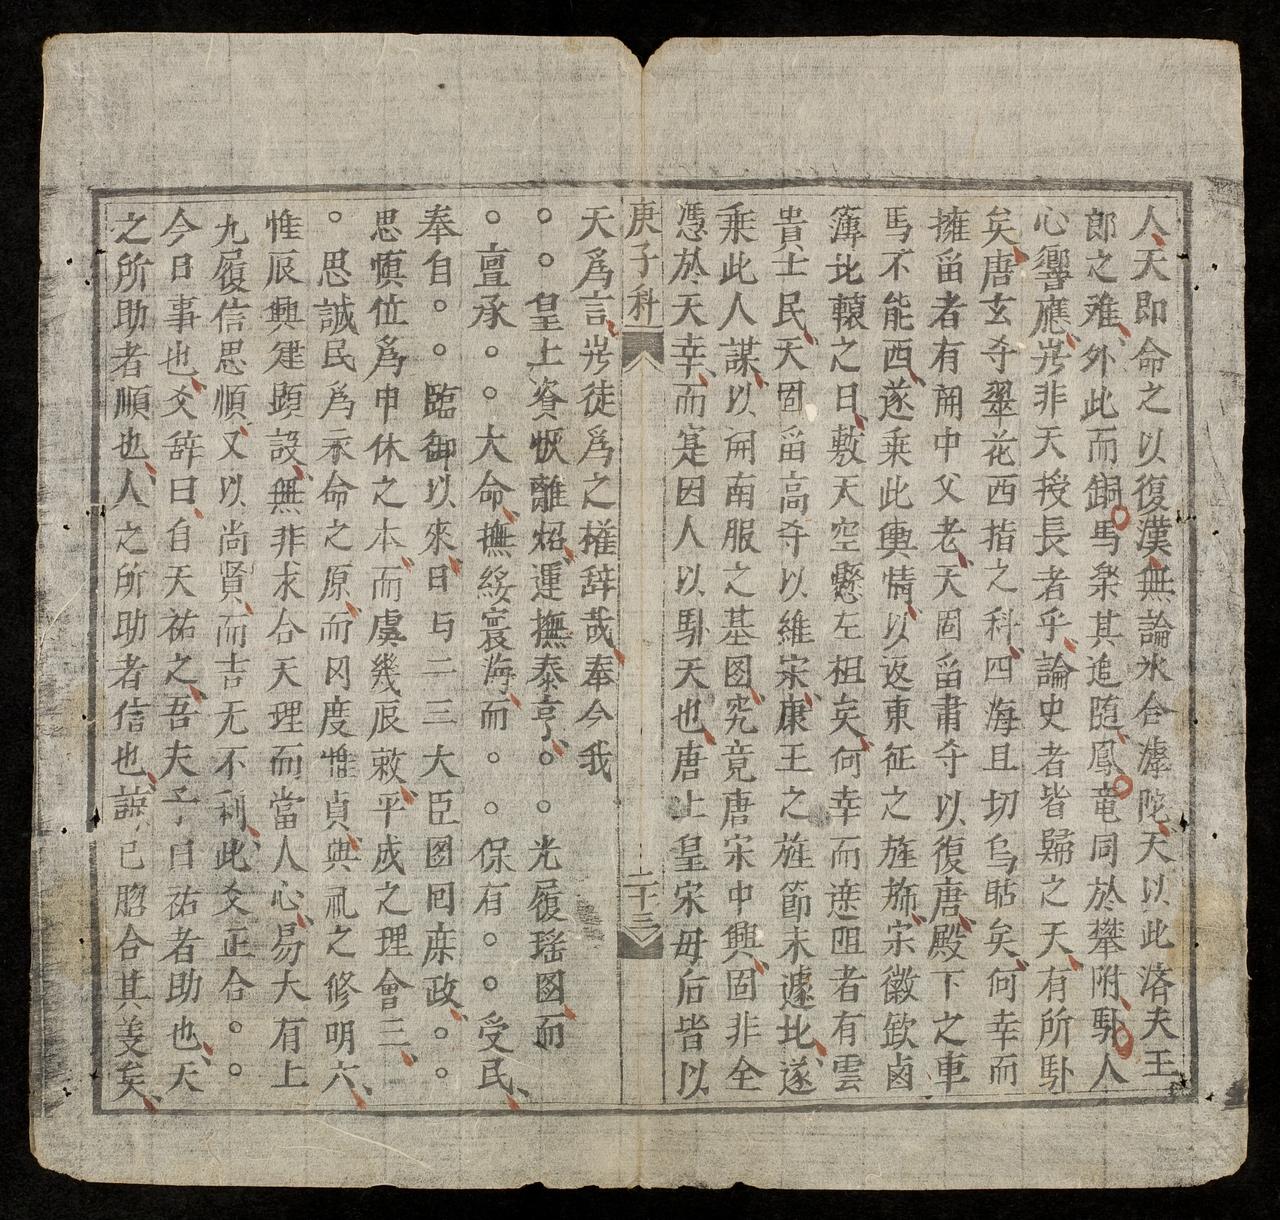 人天即命之以復漢無論氷合滹陀天以此洛夫王
郎之难外此而銅馬槊其追随鳳竜同於攀附馱人
心響應岁非天授長者乎論史者皆歸之天有所馱
矣唐玄寺翠花西指之科四海且切烏瞻矣何幸而
擁畱者有闹中父老天固畱肅寺以復唐殿下之車
馬不能西遂乘此輿情以返東征之旌斾宋徽欽鹵
簿北轅之日敷天空懸左袒矣何幸而遮迌者有雲
貴士民天固畱高寺以維宋康王之旌節未遽北遂
乘此人謀以闹南服之基图究竟唐宋中興固非全
憑於天幸而寔因人以馱天也唐上皇宋毋后皆以
庚子科 二十三
天爲言岁徒爲之權辞哉奉今我
○○皇上資恢離炤運撫泰亨○○光履瑶图而
○亶承○○大命撫綏寰海而○○保有○○受民
奉自○○臨御以來日与二三大臣图囘庶政○○
思慎位爲申休之本而虞幾辰敕平成之理會三
○思誠民爲永命之原而冈度惟貞典礼之修明六
惟辰興建顕設無非求合天理而當人心易大有上
九履信思順又以尚賢而吉无不利此爻正合○○
今日事也爻辞曰自天祐之吾夫子曰祐者助也天
之所助者順也人之所助者信也已脗合其美矣